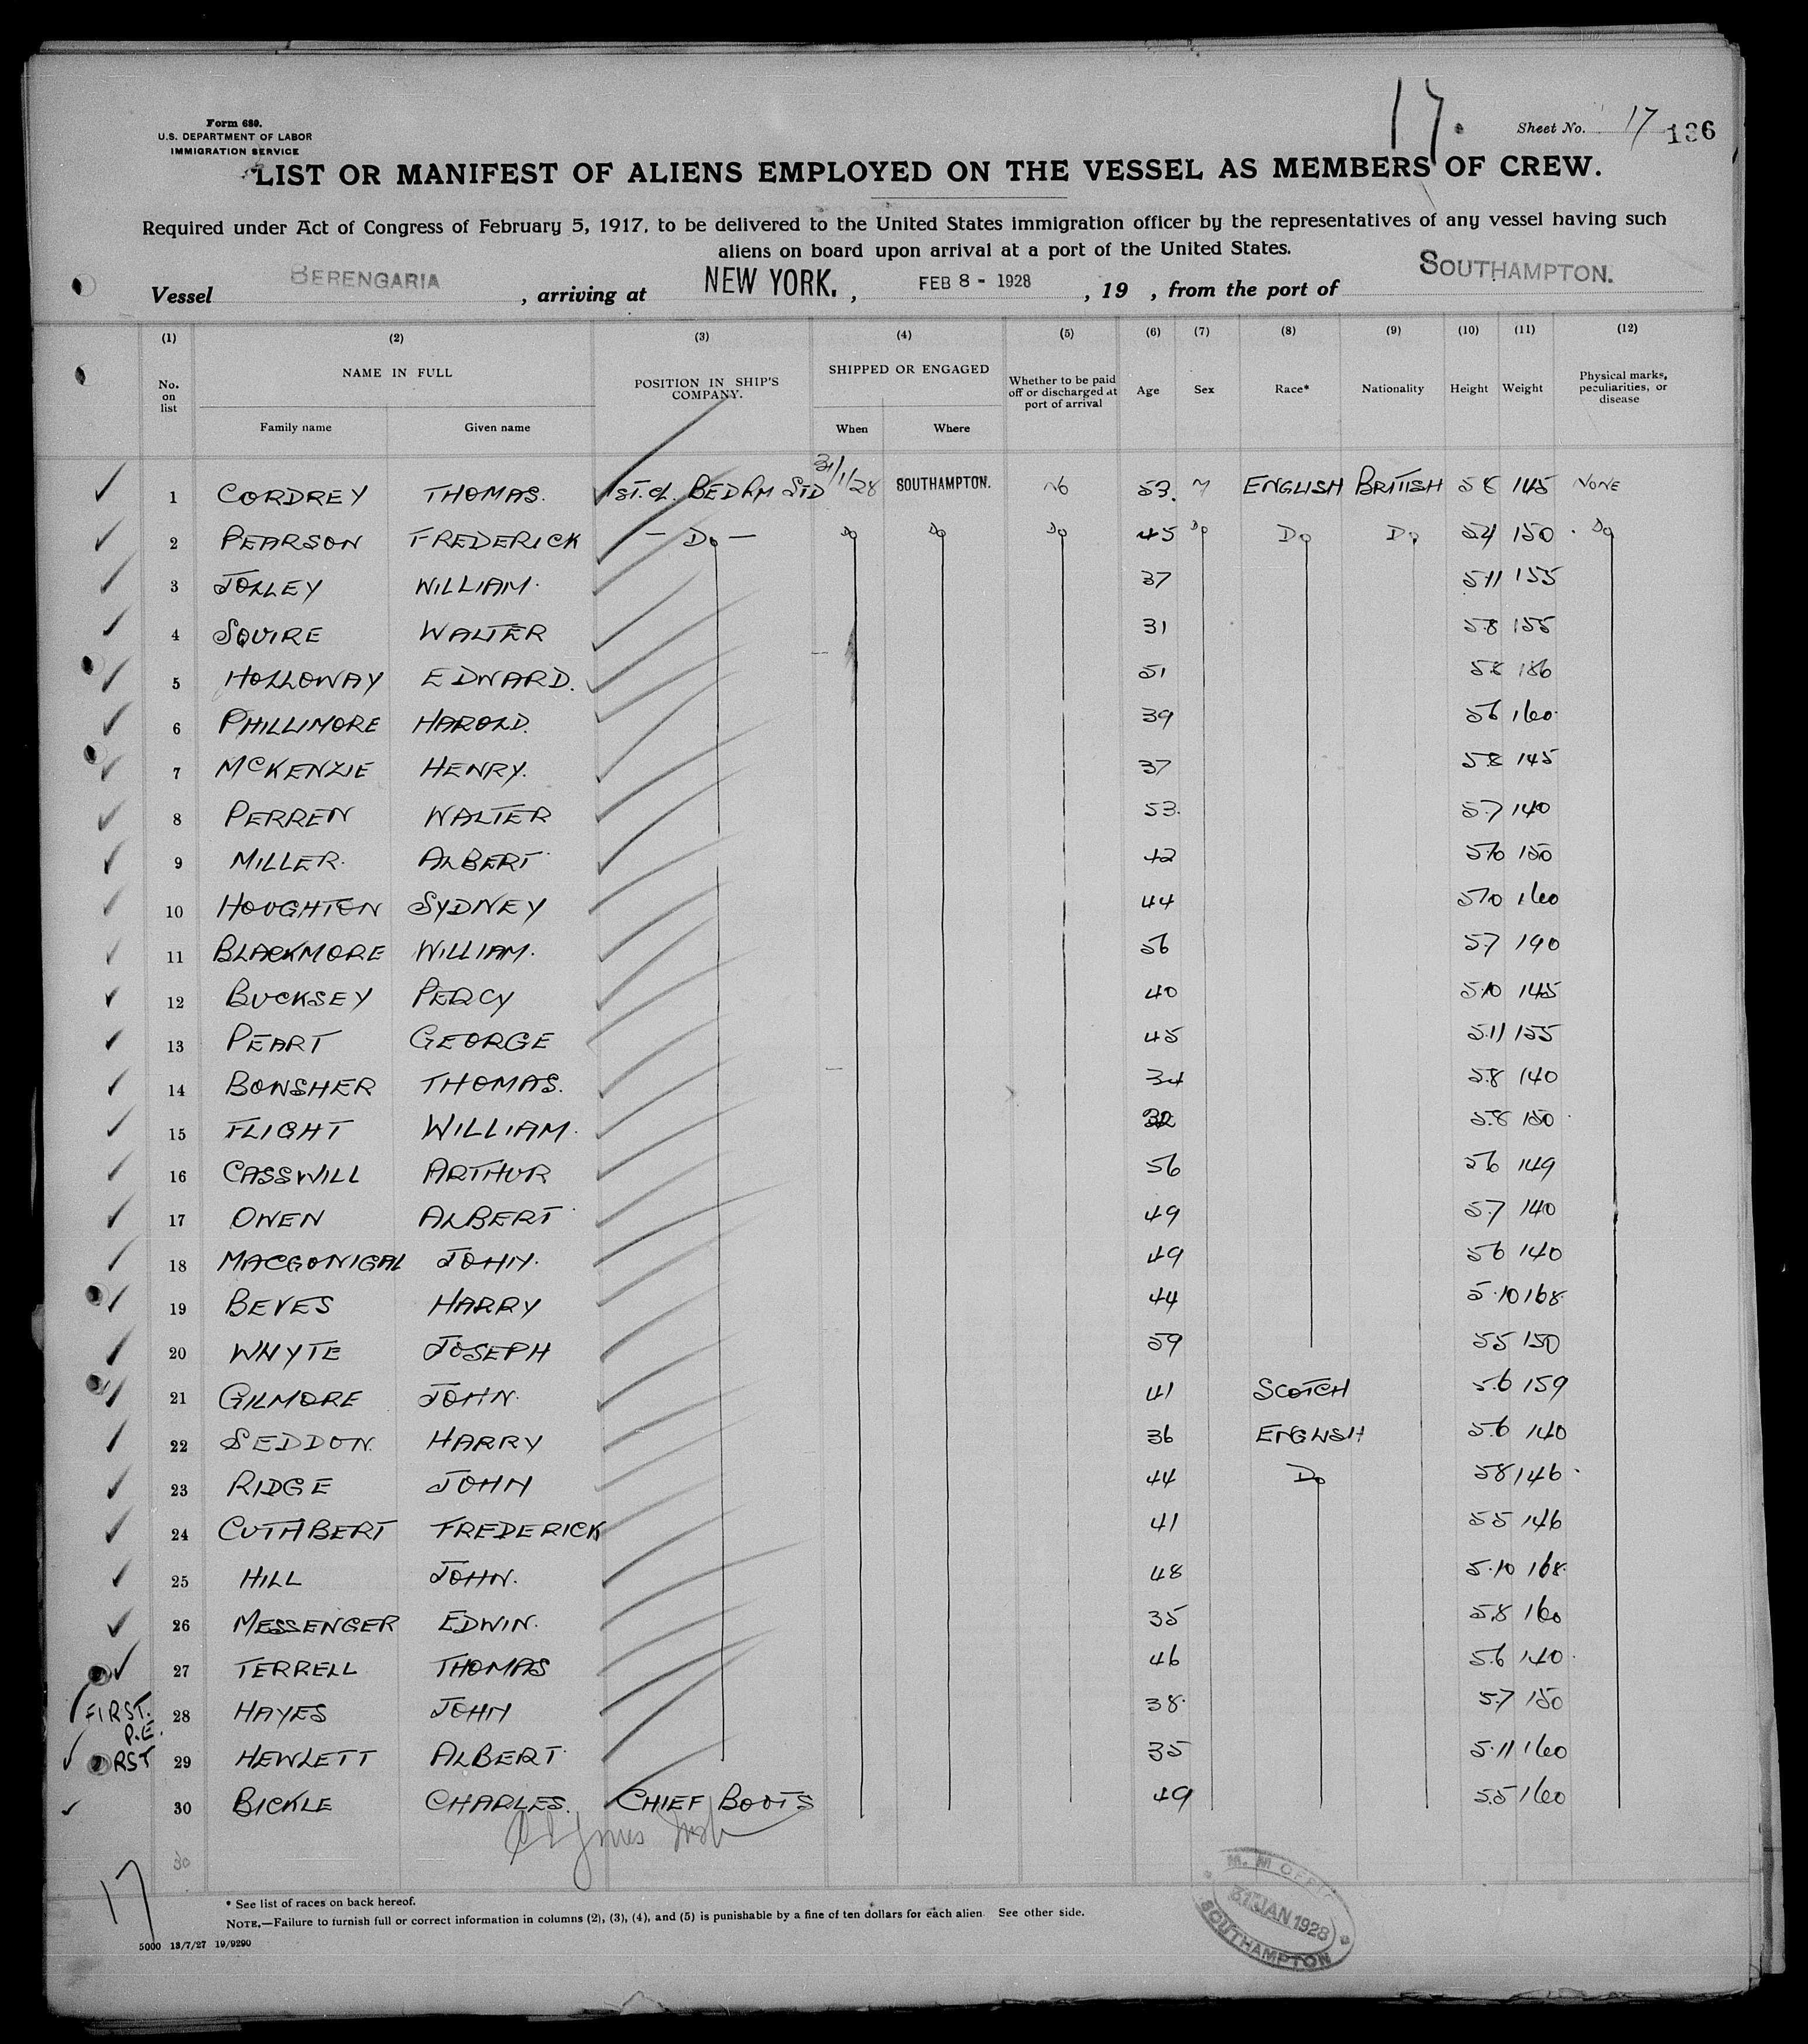 17.
Form 680.
U.S. DEPARTMENT OF LABOR
IMMIGRATION SERVICE
Sheet No. 17 136
LIST OR MANIFEST OF ALIENS EMPLOYED ON THE VESSEL AS MEMBERS OF CREW.
Required under Act of Congress of February 5, 1917, to be delivered to the United States immigration officer by the representatives of any vessel having such
aliens on board upon arrival at a port of the United States.
Vessel BERENGARIA, arriving at NEW YORK., FEB 8 - 1928, 19 , from the port of SOUTHAMPTON.
(1) (2) (3) (4) (5) (6) (7) (8) (9) (10) (11) (12)
No. on list NAME IN FULL POSITION IN SHIP'S COMPANY. SHIPPED OR ENGAGED Whether to be paid off or discharged at port of arrival Age Sex Race* Nationality Height Weight Physical marks, peculiarities, or disease
Family name Given name When Where
1 CORDREY THOMAS. 1ST. CL. BEDRM STD 31/1/28 SOUTHAMPTON. NO 53. M ENGLISH BRITISH 5 8 145 NONE
2 PEARSON FREDERICK - DO - DO DO DO 45 DO DO DO 5 4 150 DO
3 JOLLEY WILLIAM. 37 5 11 155
4 SQUIRE WALTER 31 5.8 155
5 HOLLOWAY EDWARD. 51 5.8 186
6 PHILLIMORE HAROLD. 39 5 6 160
7 MCKENZIE HENRY. 37 5.8 145
8 PERREN WALTER 53. 5.7 140
9 MILLER. ALBERT 42 5.10 150
10 HOUGHTON SYDNEY 44 5 10 160
11 BLACKMORE WILLIAM. 56 5.7 190
12 BUCKSEY PERCY 40 5.10 145
13 PEART GEORGE 45 5.11 155
14 BOWSHER THOMAS. 34 5.8 140
15 FLIGHT WILLIAM. 32 5.8 150
16 CASSWILL ARTHUR 56 5 6 149
17 OWEN ALBERT 49 5.7 140
18 MACGONIGAL JOHN. 49 5 6 140
19 BEVES HARRY 44 5.10 168
20 WHYTE JOSEPH 59 5 5 150
21 GILMORE JOHN. 41 SCOTCH 5.6 159
22 SEDDON. HARRY 36 ENGLISH 5.6 140
23 RIDGE JOHN 44 DO 5 8 146
24 CUTHBERT FREDERICK 41 5 5 146
25 HILL JOHN. 48 5.10 168
26 MESSENGER EDWIN. 35 5.8 160
27 TERRELL THOMAS 46 5.6 140
FIRST. P.E. 28 HAYES JOHN 38. 5.7 150
RST 29 HEWLETT ALBERT 35 5.11 160
30 BICKLE CHARLES. CHIEF BOOTS 49 5.5 160
30
17
* See list of races on back hereof.
NOTE.—Failure to furnish full or correct information in columns (2), (3), (4), and (5) is punishable by a fine of ten dollars for each alien. See other side.
5000 13/7/27 19/9290
M. M OFFIC
31 JAN 1928
SOUTHAMPTON